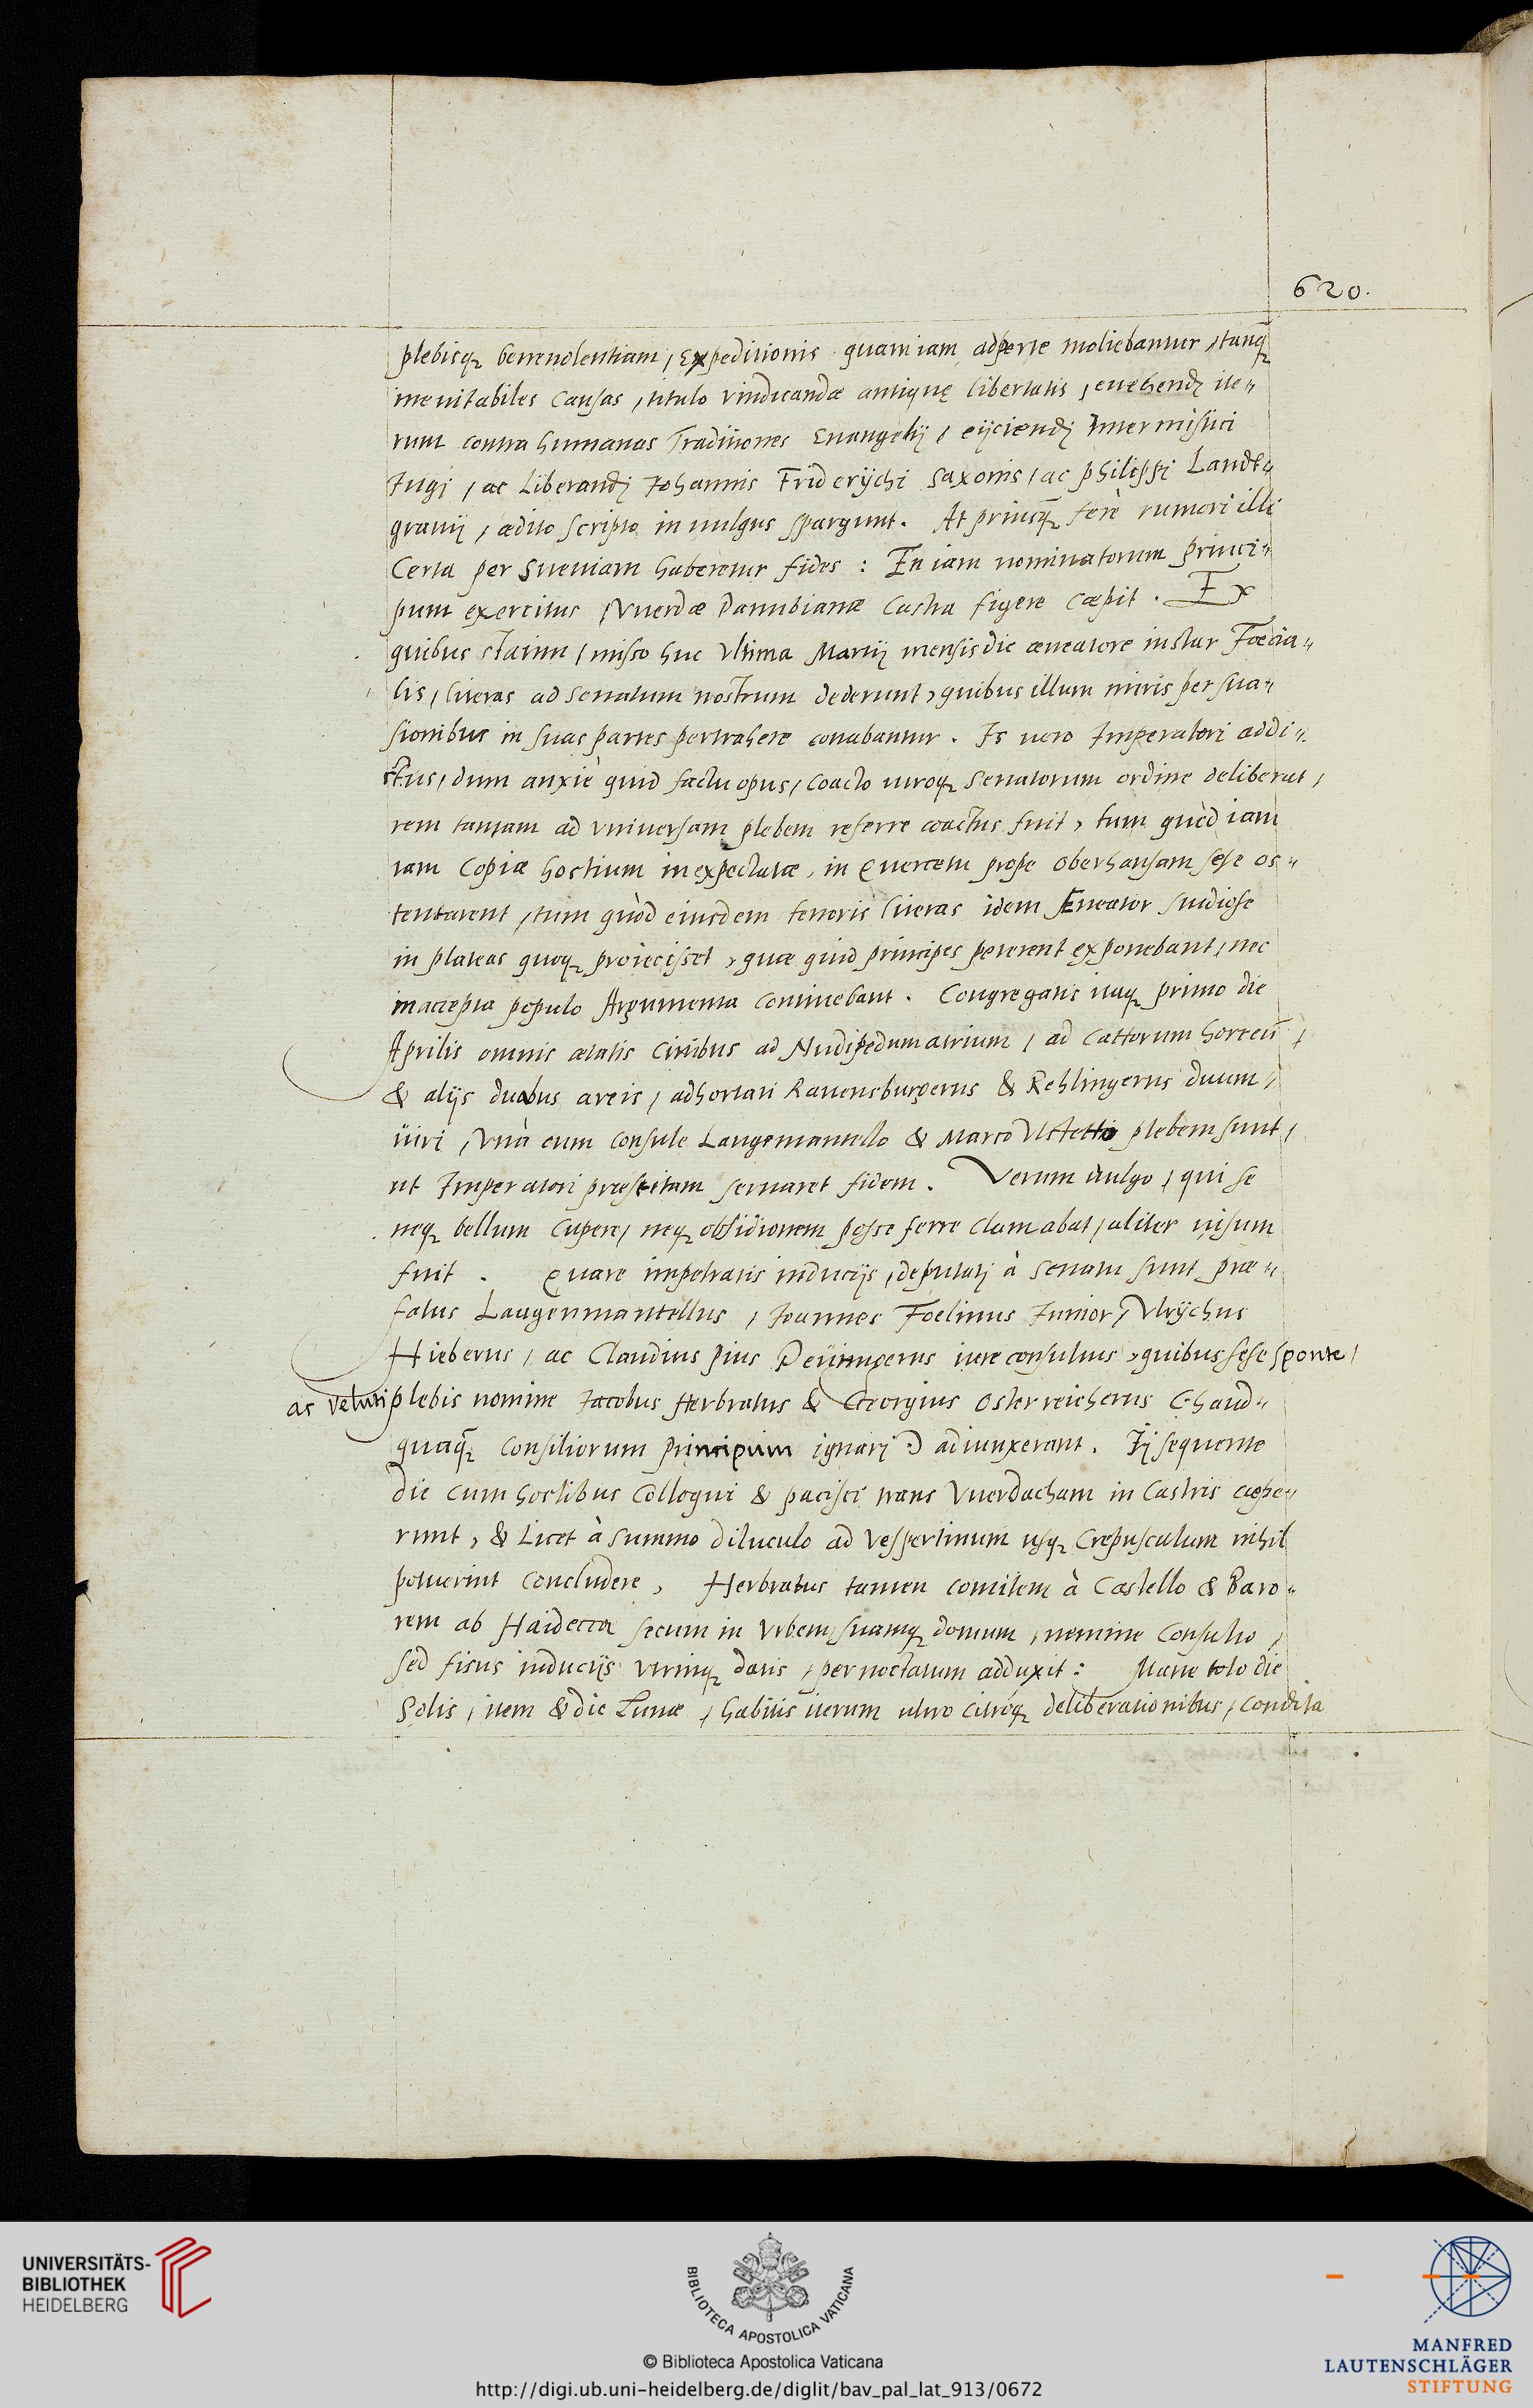 620.
plebisq₃ benevolentiam, Expeditionis quam iam adperte moliebantur, tanq̃
inevitabiles Causas, titulo vindicandæ antiquę libertatis, evehendj ite„
rum contra humanas Traditiones Evangelij, eijciendj Intermistici
Jugj, ac Liberandj Johannis Friderÿchi Saxonis, ac Philippi Landt„
gravij, ædito scripto in vulgus spargunt. At priusq̃ ferè rumori illi
Certa per Sueviam haberetur fides: En iam nominatorum Princi„
pum exercitus, Vuerdæ Danubianæ Castra figere cæpit. Ex
quibus statim, misso huc Vltima Martij mensis die æneatore instar Foecia„
lis, literas ad Senatum nostrum dederunt, quibus illum miris persua„
sionibus in suas partes pertrahere conabantur. Is vero Imperatori addi„
ctus, dum anxiè quid factu opus, coacto utroq₃ Senatorum ordine deliberat,
rem tantam ad vniversam plebem referre coactus fuit, tum quòd iam
iam Copiæ hostium inexpectatæ, in Quercetu prope Oberhausam sese os„
tentarent, tum quòd eiusdem tenoris literas idem Æneator studiose
in plateas quoq₃ proiecisset, quæ quid principes peterent exponebant, nec
inaccepta populo Argumenta continebant. Congregatis itaq₃ primo die
Aprilis omnis ætatis Civibus ad Nudipedum atrium, ad Cattorum horreũ,
& alijs duabus areis, adhortati Ravensburgerus & Rehlingerus duum„
viri, vnà cum Consule Langemantello & Marco Vlstettio plebem sunt,
ut Imperatori præstitam servaret fidem. Verum vulgo, qui se
neq₃ bellum Cupere, neq₃ obsidionem posse ferre clamabat, aliter visum
fuit. Quare impetratis inducijs, deputatj à Senatu sunt præ„
fatus Langenmantellus, Joannes Foelinus Junior, Vlrÿchus
Hieberus, ac Claudius Pius Peütingerus iure consultus, quibus sese sponte,
ac veluti plebis nomine Jacobus Herbratus & Georgius Osterreicherus (haud„
quaq̃ Consiliorum Principum ignarj) adiunxerant. Ij sequente
die cum hostibus Colloqui & pacisci trans Vuerdacham in Castris cæpe„
runt, & Licet à summo diluculo ad Vespertinum usq₃ Crepusculum nihil
potuerint concludere, Herbratus tamen comitem à Castello & Baro„
nem ab Haidecca secum in Vrbem, suamq₃ domum, nemine Consulto,
sed fisus inducijs utrinq₃ datis, pernoctatum adduxit: Mane toto die
Solis, item & die Lunæ, habitis iterum ultro citróq₃ deliberationibus, condita
UNIVERSITÄTS-
BIBLIOTHEK
HEIDELBERG
BIBLIOTECA APOSTOLICA VATICANA
© Biblioteca Apostolica Vaticana
http://digi.ub.uni-heidelberg.de/diglit/bav_pal_lat_913/0672
MANFRED
LAUTENSCHLÄGER
STIFTUNG